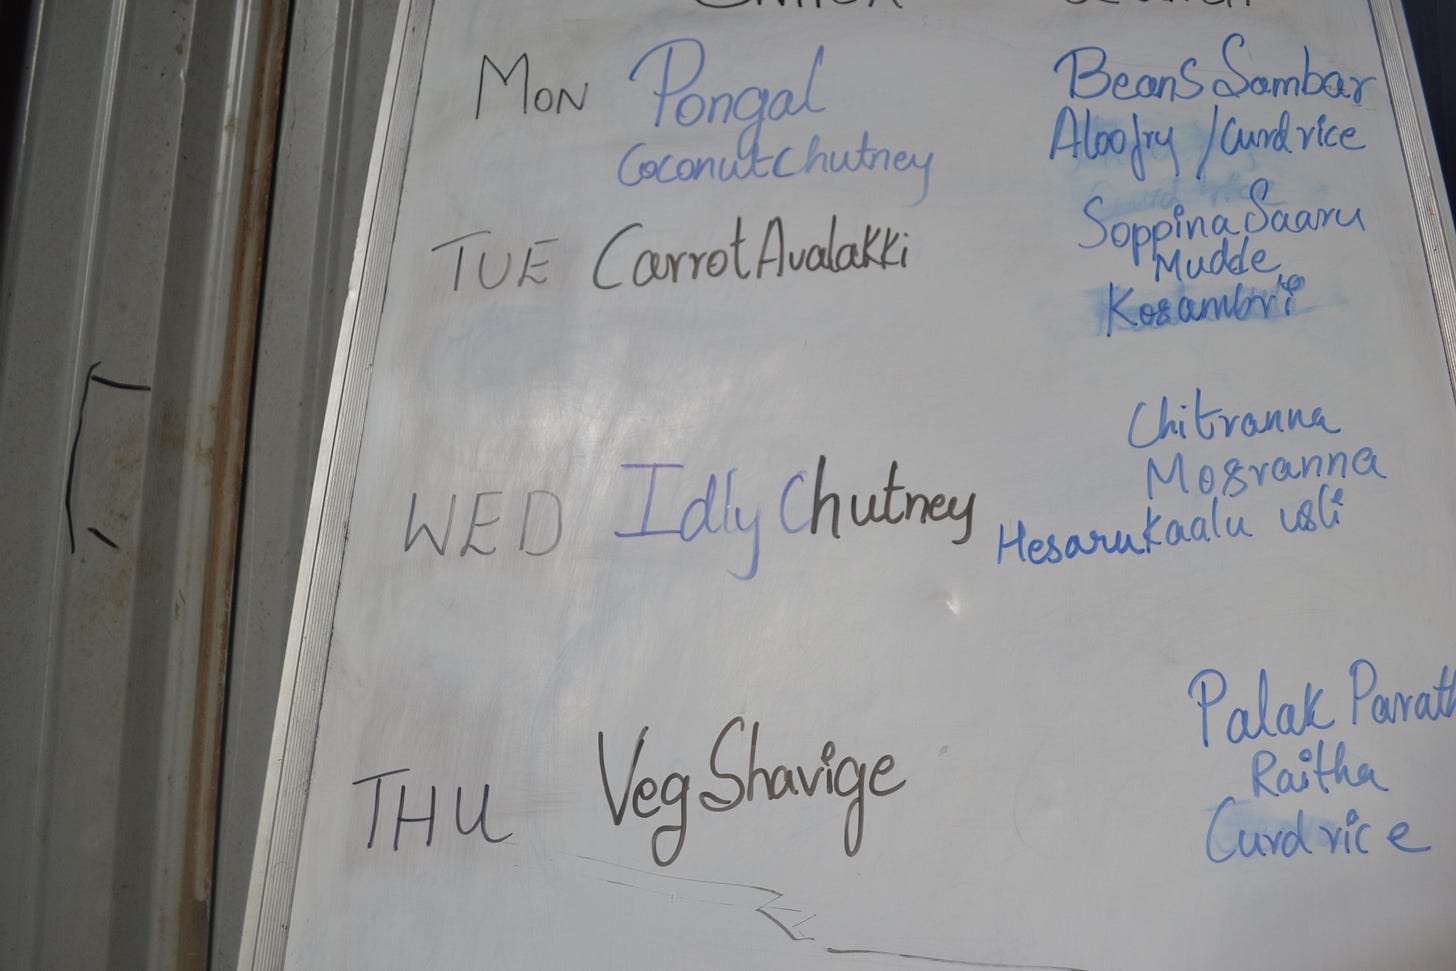 Mon Pongal Beans Sambar
Coconut Chutney Aloofry / Curd rice
TUE Carrot Avalakki Soppina Saaru
Mudde
Kosambri
Chitranna
Mosranna
WED Idly Chutney Hesarukaalu usli
Palak Parat
THU Veg Shavige Raitha
Curd rice